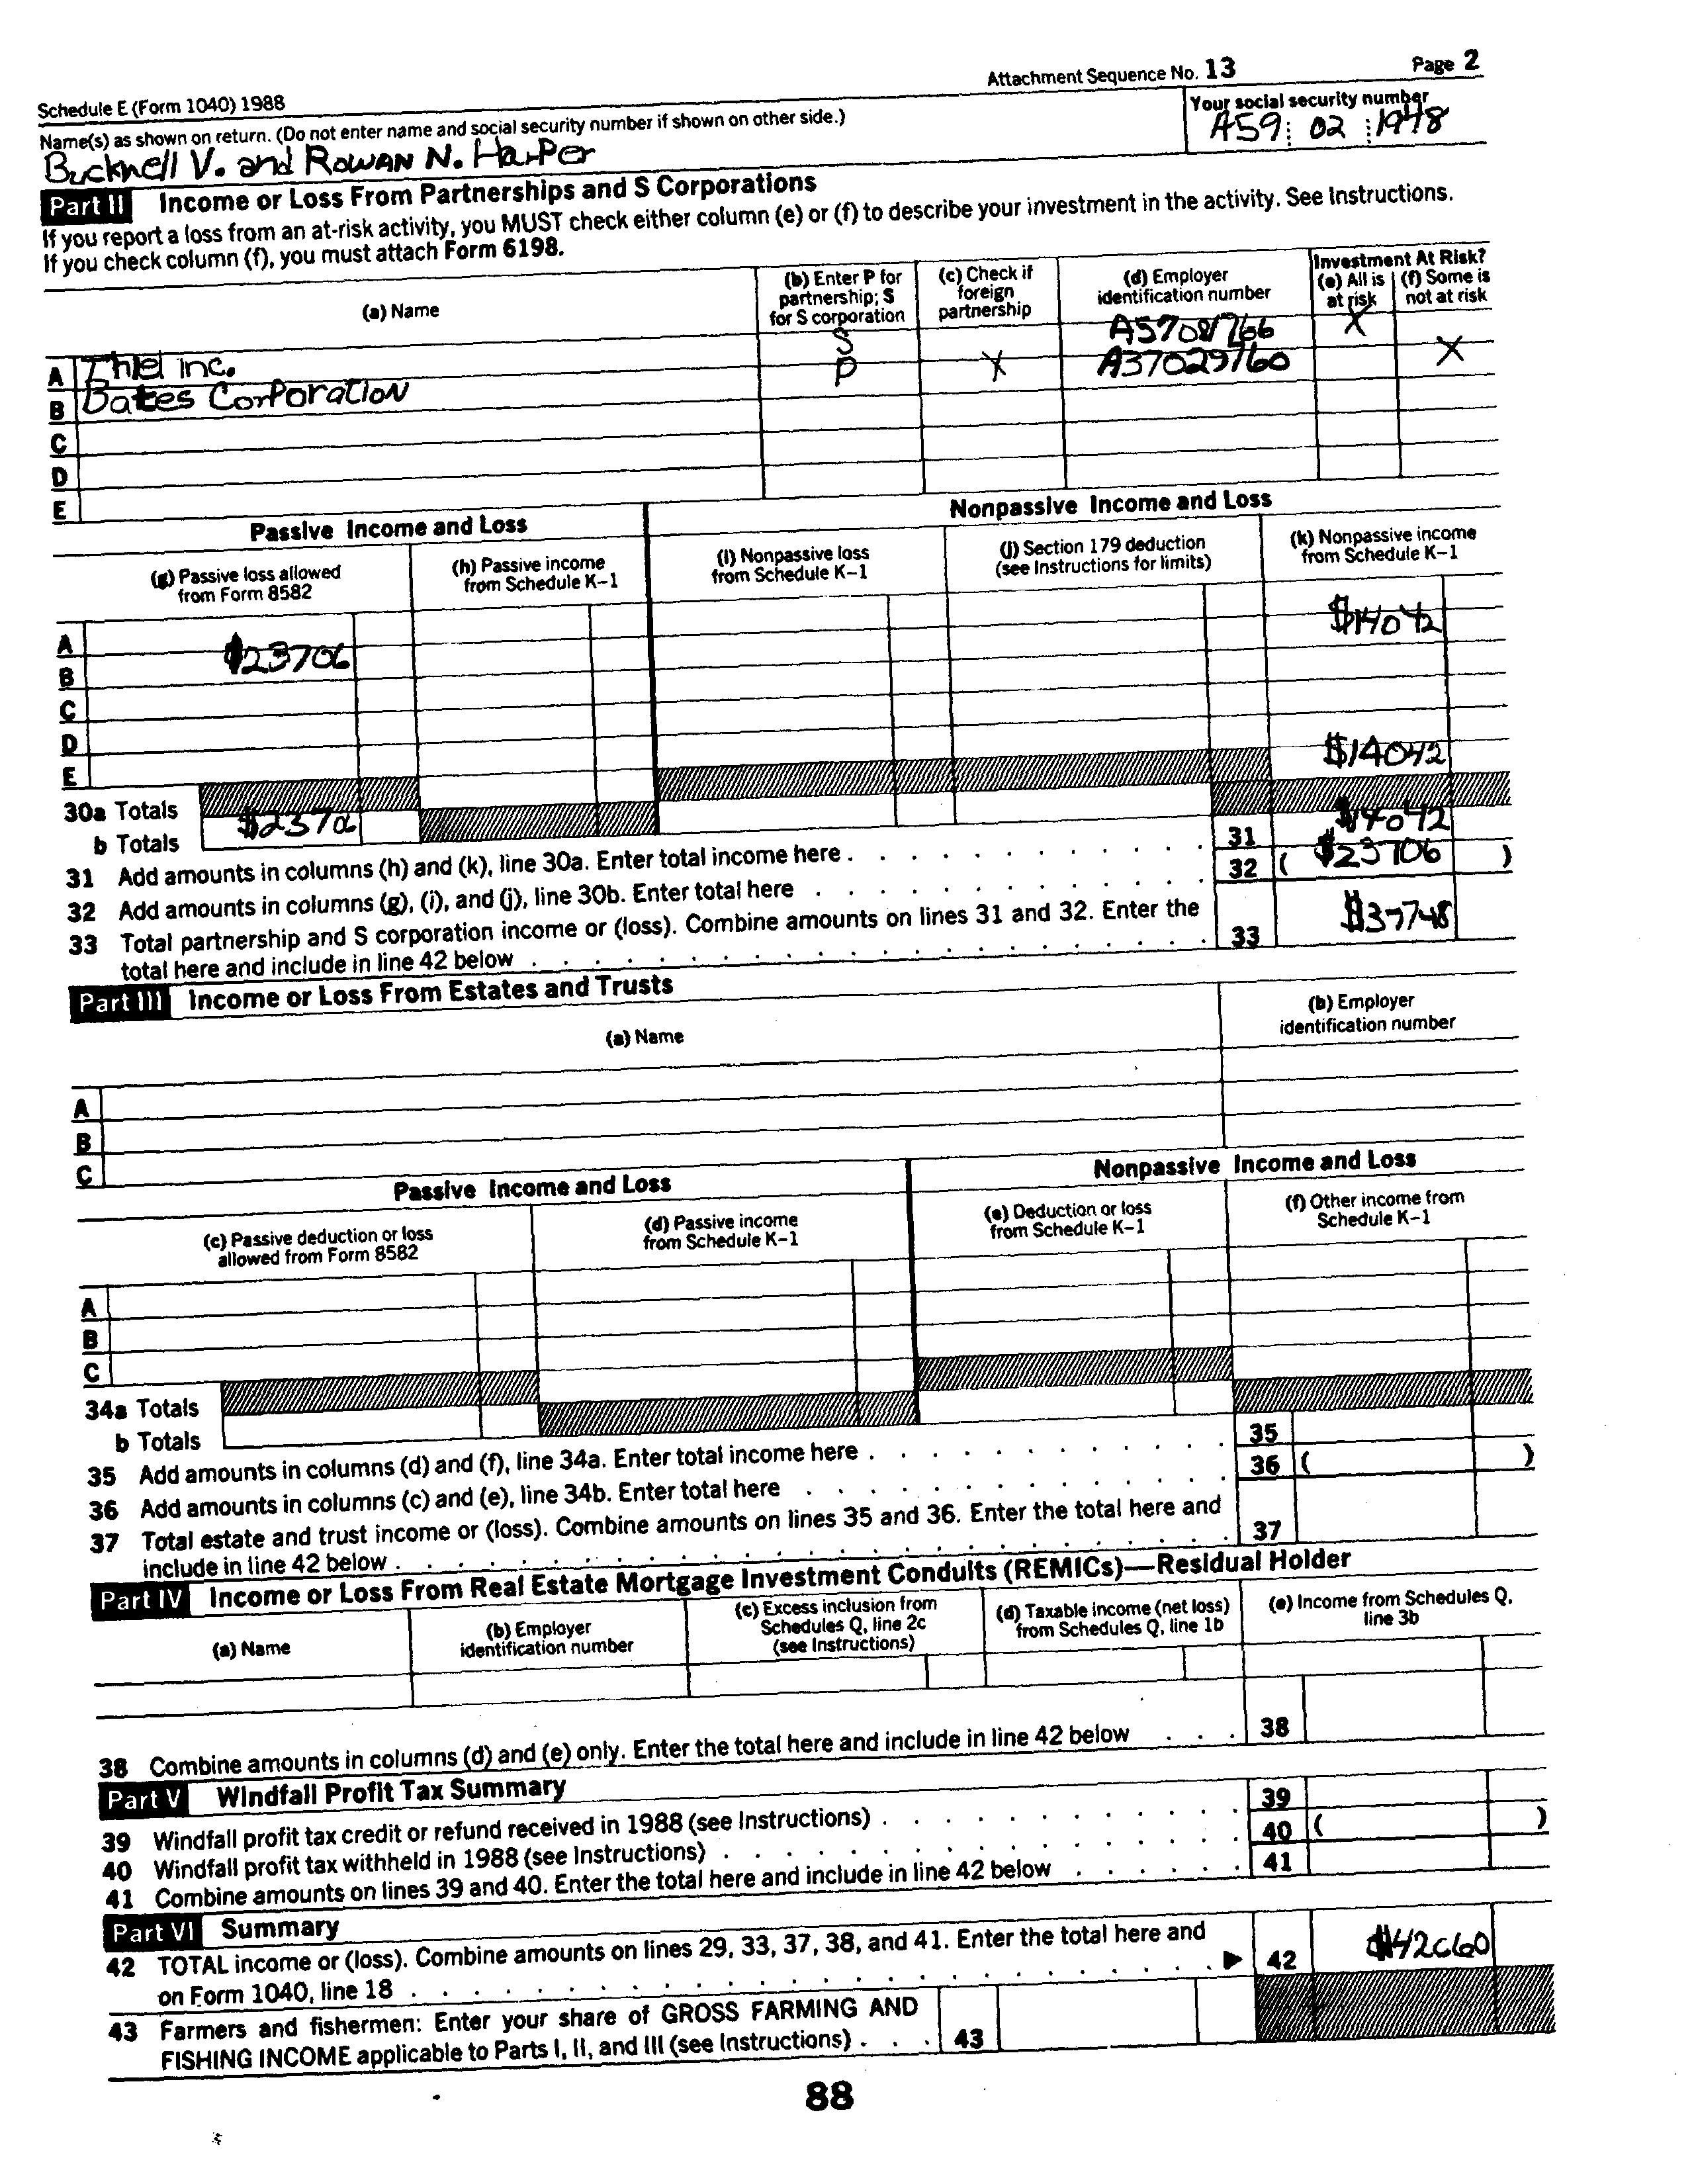 Attachment Sequence No. 13 Page 2
Schedule E (Form 1040) 1988
Name(s) as shown on return. (Do not enter name and social security number if shown on other side.)
Your social security number
A59 02 1948
Bucknell V. and Rowan N. Harper
Part II Income or Loss From Partnerships and S Corporations
If you report a loss from an at-risk activity, you MUST check either column (e) or (f) to describe your investment in the activity. See Instructions.
If you check column (f), you must attach Form 6198.
(a) Name
(b) Enter P for partnership; S for S corporation
(c) Check if foreign partnership
(d) Employer identification number
Investment At Risk?
(e) All is at risk
(f) Some is not at risk
A Thiel inc. S A57081766 X
B Bates Corporation P X A37029760 X
C
D
E
Passive Income and Loss
Nonpassive Income and Loss
(g) Passive loss allowed from Form 8582
(h) Passive income from Schedule K-1
(i) Nonpassive loss from Schedule K-1
(j) Section 179 deduction (see Instructions for limits)
(k) Nonpassive income from Schedule K-1
A $14042
B $23706
C
D
E
30a Totals $14042
b Totals
31 Add amounts in columns (h) and (k), line 30a. Enter total income here . 31 $14042
32 Add amounts in columns (g), (i), and (j), line 30b. Enter total here . 32 ( $23706 )
33 Total partnership and S corporation income or (loss). Combine amounts on lines 31 and 32. Enter the
total here and include in line 42 below . 33 $37748
Part III Income or Loss From Estates and Trusts
(a) Name
(b) Employer identification number
A
B
C
Passive Income and Loss
Nonpassive Income and Loss
(c) Passive deduction or loss allowed from Form 8582
(d) Passive income from Schedule K-1
(e) Deduction or loss from Schedule K-1
(f) Other income from Schedule K-1
A
B
C
34a Totals
b Totals
35 Add amounts in columns (d) and (f), line 34a. Enter total income here . 35
36 Add amounts in columns (c) and (e), line 34b. Enter total here . 36 ( )
37 Total estate and trust income or (loss). Combine amounts on lines 35 and 36. Enter the total here and
include in line 42 below . 37
Part IV Income or Loss From Real Estate Mortgage Investment Conduits (REMICs)—Residual Holder
(a) Name
(b) Employer identification number
(c) Excess inclusion from Schedules Q, line 2c (see Instructions)
(d) Taxable income (net loss) from Schedules Q, line 1b
(e) Income from Schedules Q, line 3b
38 Combine amounts in columns (d) and (e) only. Enter the total here and include in line 42 below . 38
Part V Windfall Profit Tax Summary
39 Windfall profit tax credit or refund received in 1988 (see Instructions) . 39
40 Windfall profit tax withheld in 1988 (see Instructions) . 40 ( )
41 Combine amounts on lines 39 and 40. Enter the total here and include in line 42 below . 41
Part VI Summary
42 TOTAL income or (loss). Combine amounts on lines 29, 33, 37, 38, and 41. Enter the total here and
on Form 1040, line 18 . 42
43 Farmers and fishermen: Enter your share of GROSS FARMING AND
FISHING INCOME applicable to Parts I, II, and III (see Instructions) . 43
88